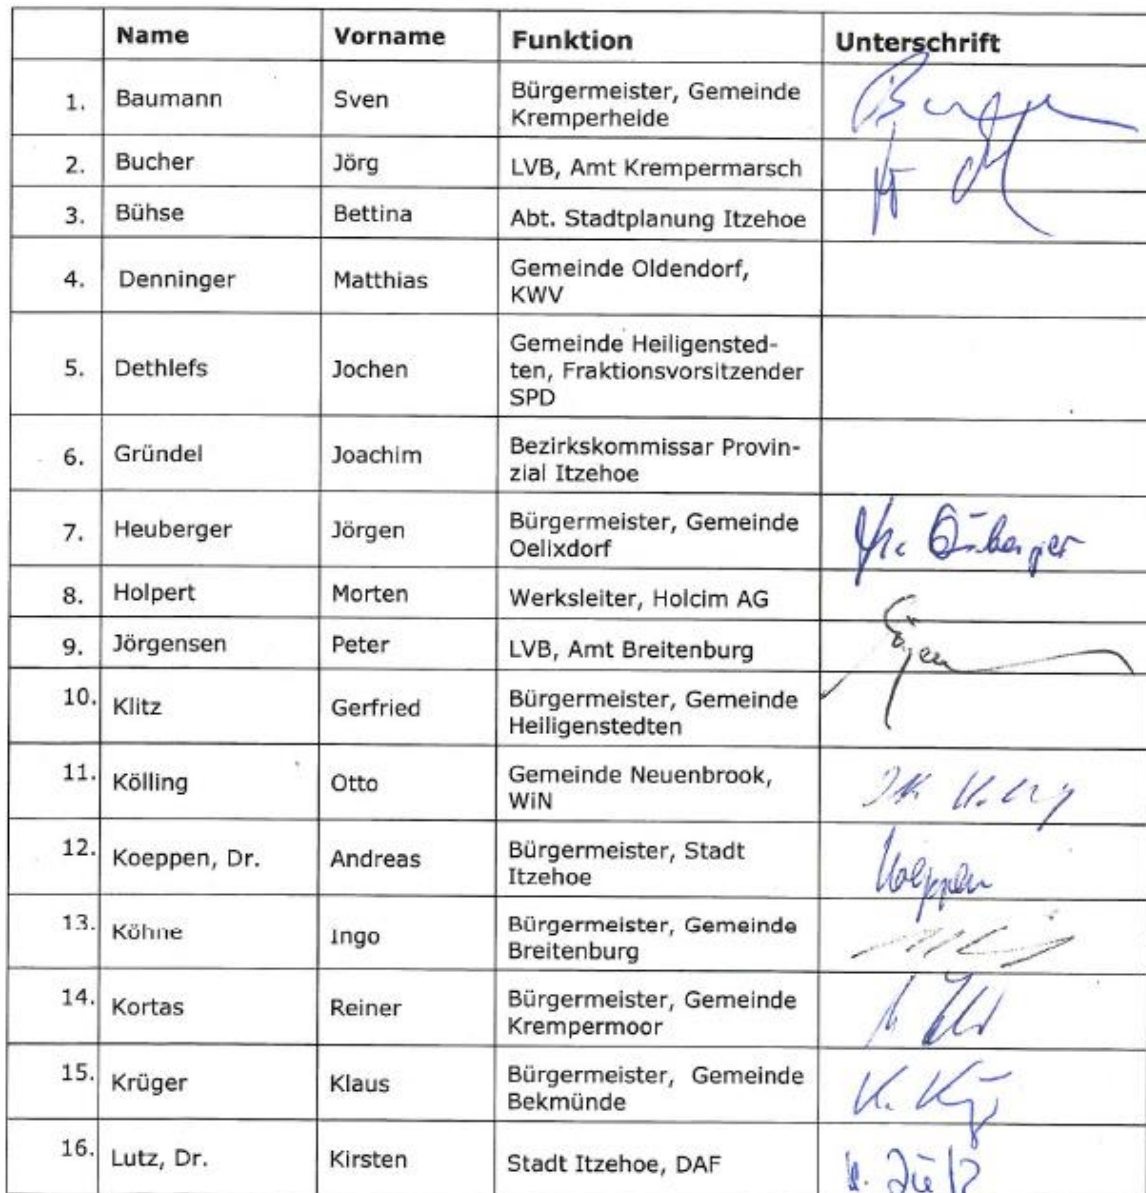 Name Vorname Funktion Unterschrift
1. Baumann Sven Bürgermeister, Gemeinde
Kremperheide
2. Bucher Jörg LVB, Amt Krempermarsch
3. Bühse Bettina Abt. Stadtplanung Itzehoe
4. Denninger Matthias Gemeinde Oldendorf,
KWV
5. Dethlefs Jochen Gemeinde Heiligensted-
ten, Fraktionsvorsitzender
SPD
6. Gründel Joachim Bezirkskommissar Provin-
zial Itzehoe
7. Heuberger Jörgen Bürgermeister, Gemeinde
Oelixdorf
8. Holpert Morten Werksleiter, Holcim AG
9. Jörgensen Peter LVB, Amt Breitenburg
10. Klitz Gerfried Bürgermeister, Gemeinde
Heiligenstedten
11. Kölling Otto Gemeinde Neuenbrook,
WiN
12. Koeppen, Dr. Andreas Bürgermeister, Stadt Koeppen
Itzehoe
13. Köhne Ingo Bürgermeister, Gemeinde
Breitenburg
14. Kortas Reiner Bürgermeister, Gemeinde
Krempermoor
15. Krüger Klaus Bürgermeister, Gemeinde
Bekmünde
16. Lutz, Dr. Kirsten Stadt Itzehoe, DAF